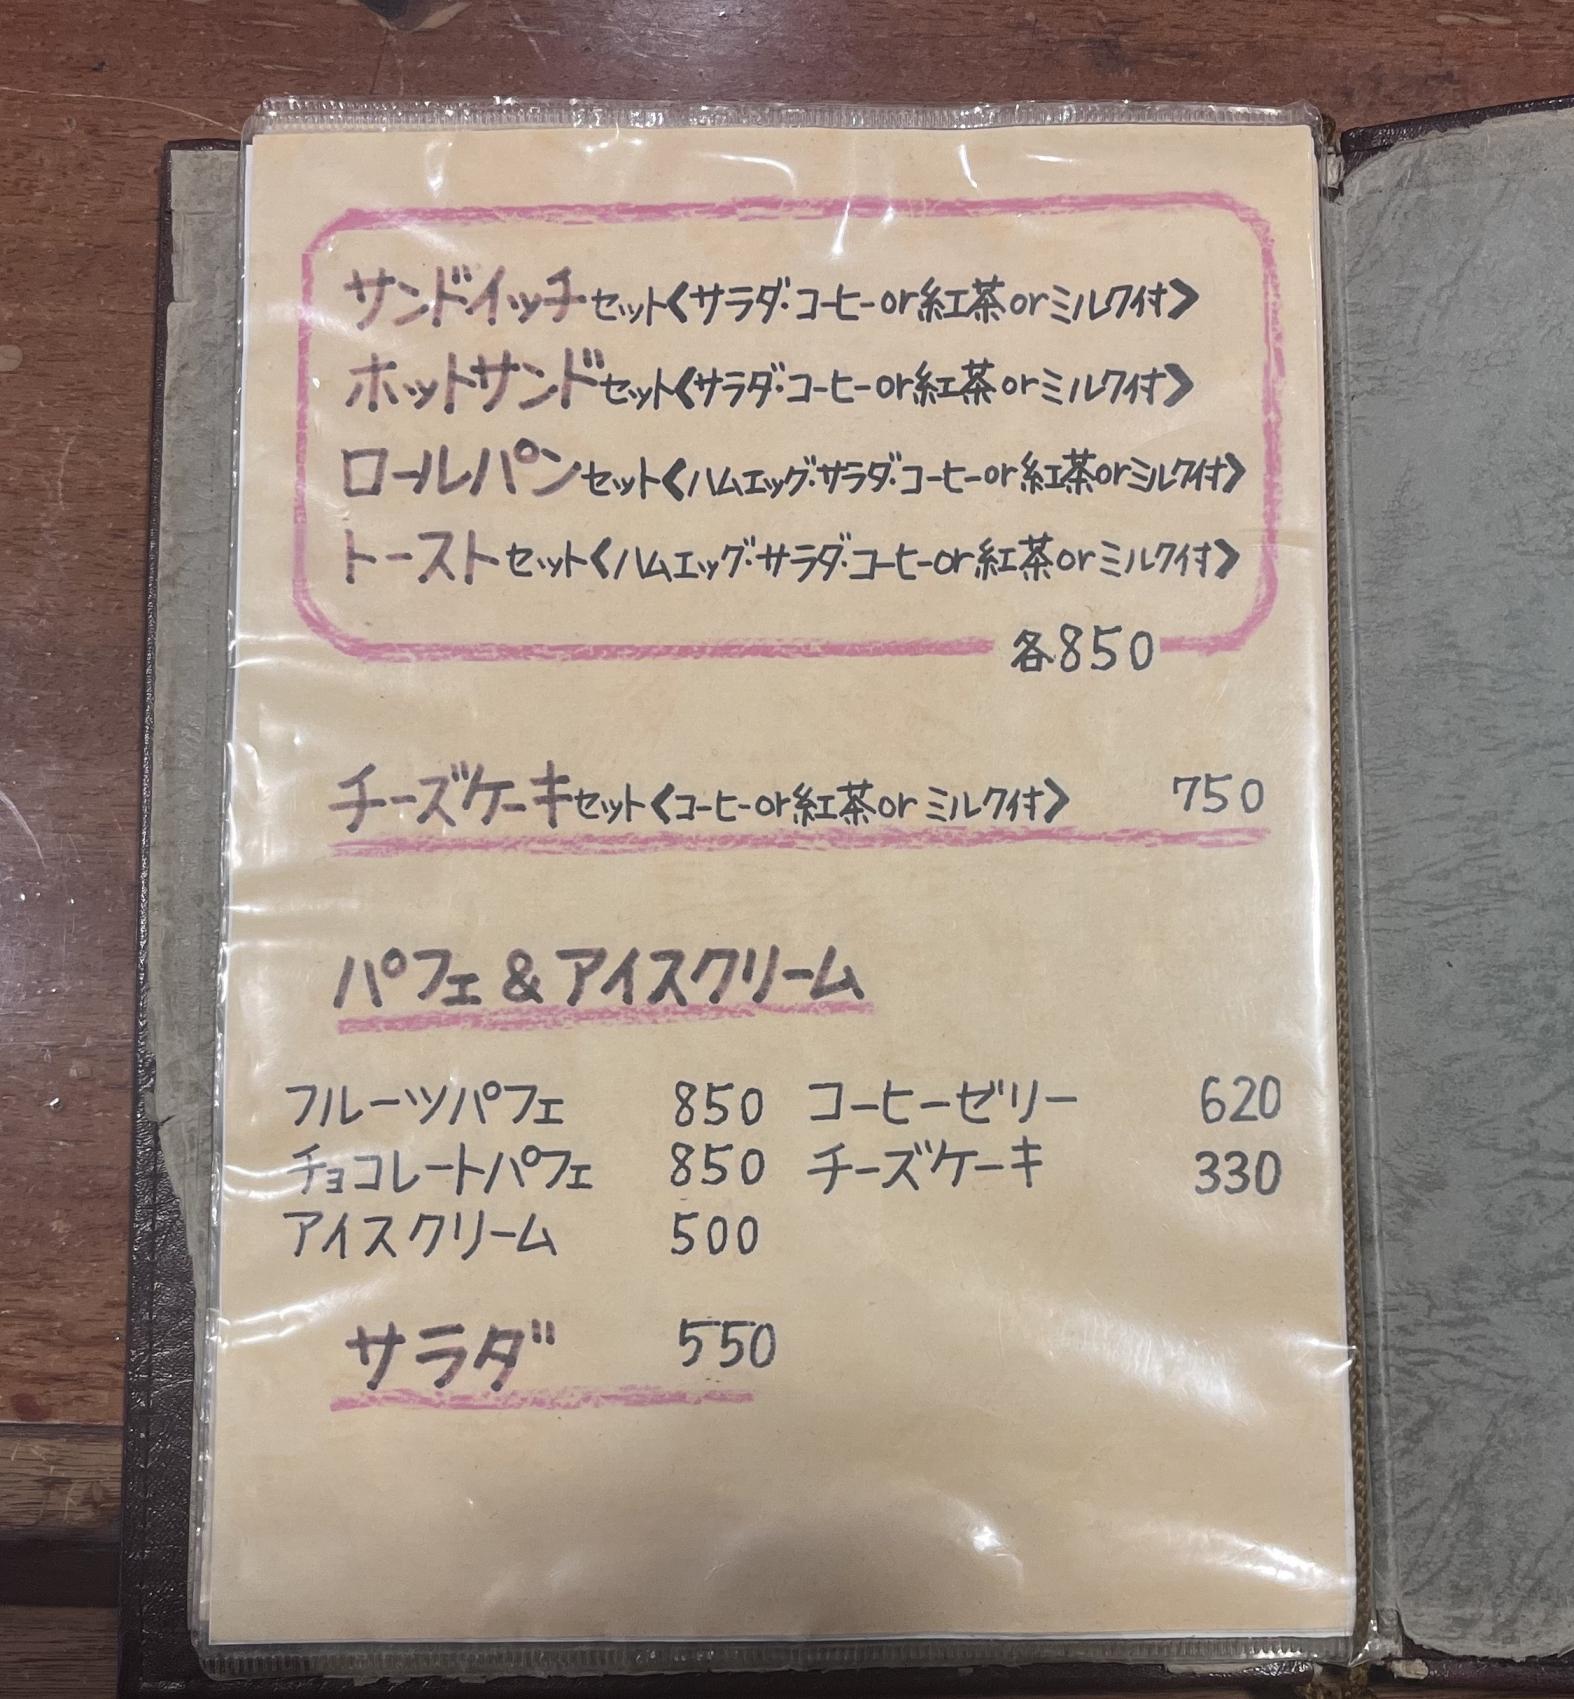 サンドイッチセット<サラダ・コーヒーor紅茶orミルク付>
ホットサンドセット<サラダ・コーヒーor紅茶orミルク付>
ロールパンセット<ハムエッグ・サラダ・コーヒーor紅茶orミルク付>
トーストセット<ハムエッグ・サラダ・コーヒーor紅茶orミルク付>
各850
チーズケーキセット<コーヒーor紅茶orミルク付> 750
パフェ&アイスクリーム
フルーツパフェ 850 コーヒーゼリー 620
チョコレートパフェ 850 チーズケーキ 330
アイスクリーム 500
サラダ 550